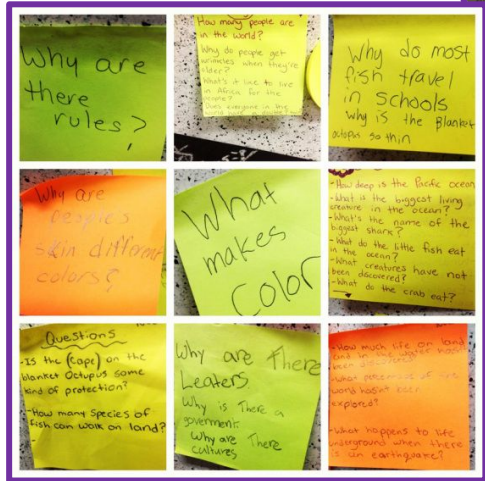 Why are
there
rules?
How many people are
in the world?
Why do people get
wrinkles when they're
older?
What's it like to live
in Africa for the
people?
Does everyone in the
world have a
Why do most
fish travel
in schools
why is the Blanket
octopus so thin
Why are
people's
skin different
colors?
What
makes
Color
-How deep is the Pacific ocean
-What is the biggest living
creature in the ocean?
-What's the name of the
biggest shark?
-What do the little fish eat
in the ocean?
-What creatures have not
been discovered?
-What do the crab eat?
Questions
-Is the (cape) on the
blanket Octupus some
kind of protection?
-How many species of
fish can walk on land?
Why are There
Leaters
Why is There a
government
Why are There
cultures
-How much life on land
and in the water hasn't
been discovered?
-What percentage of the
world hasn't been
explored?
-What happens to life
underground when there
is an earthquake?